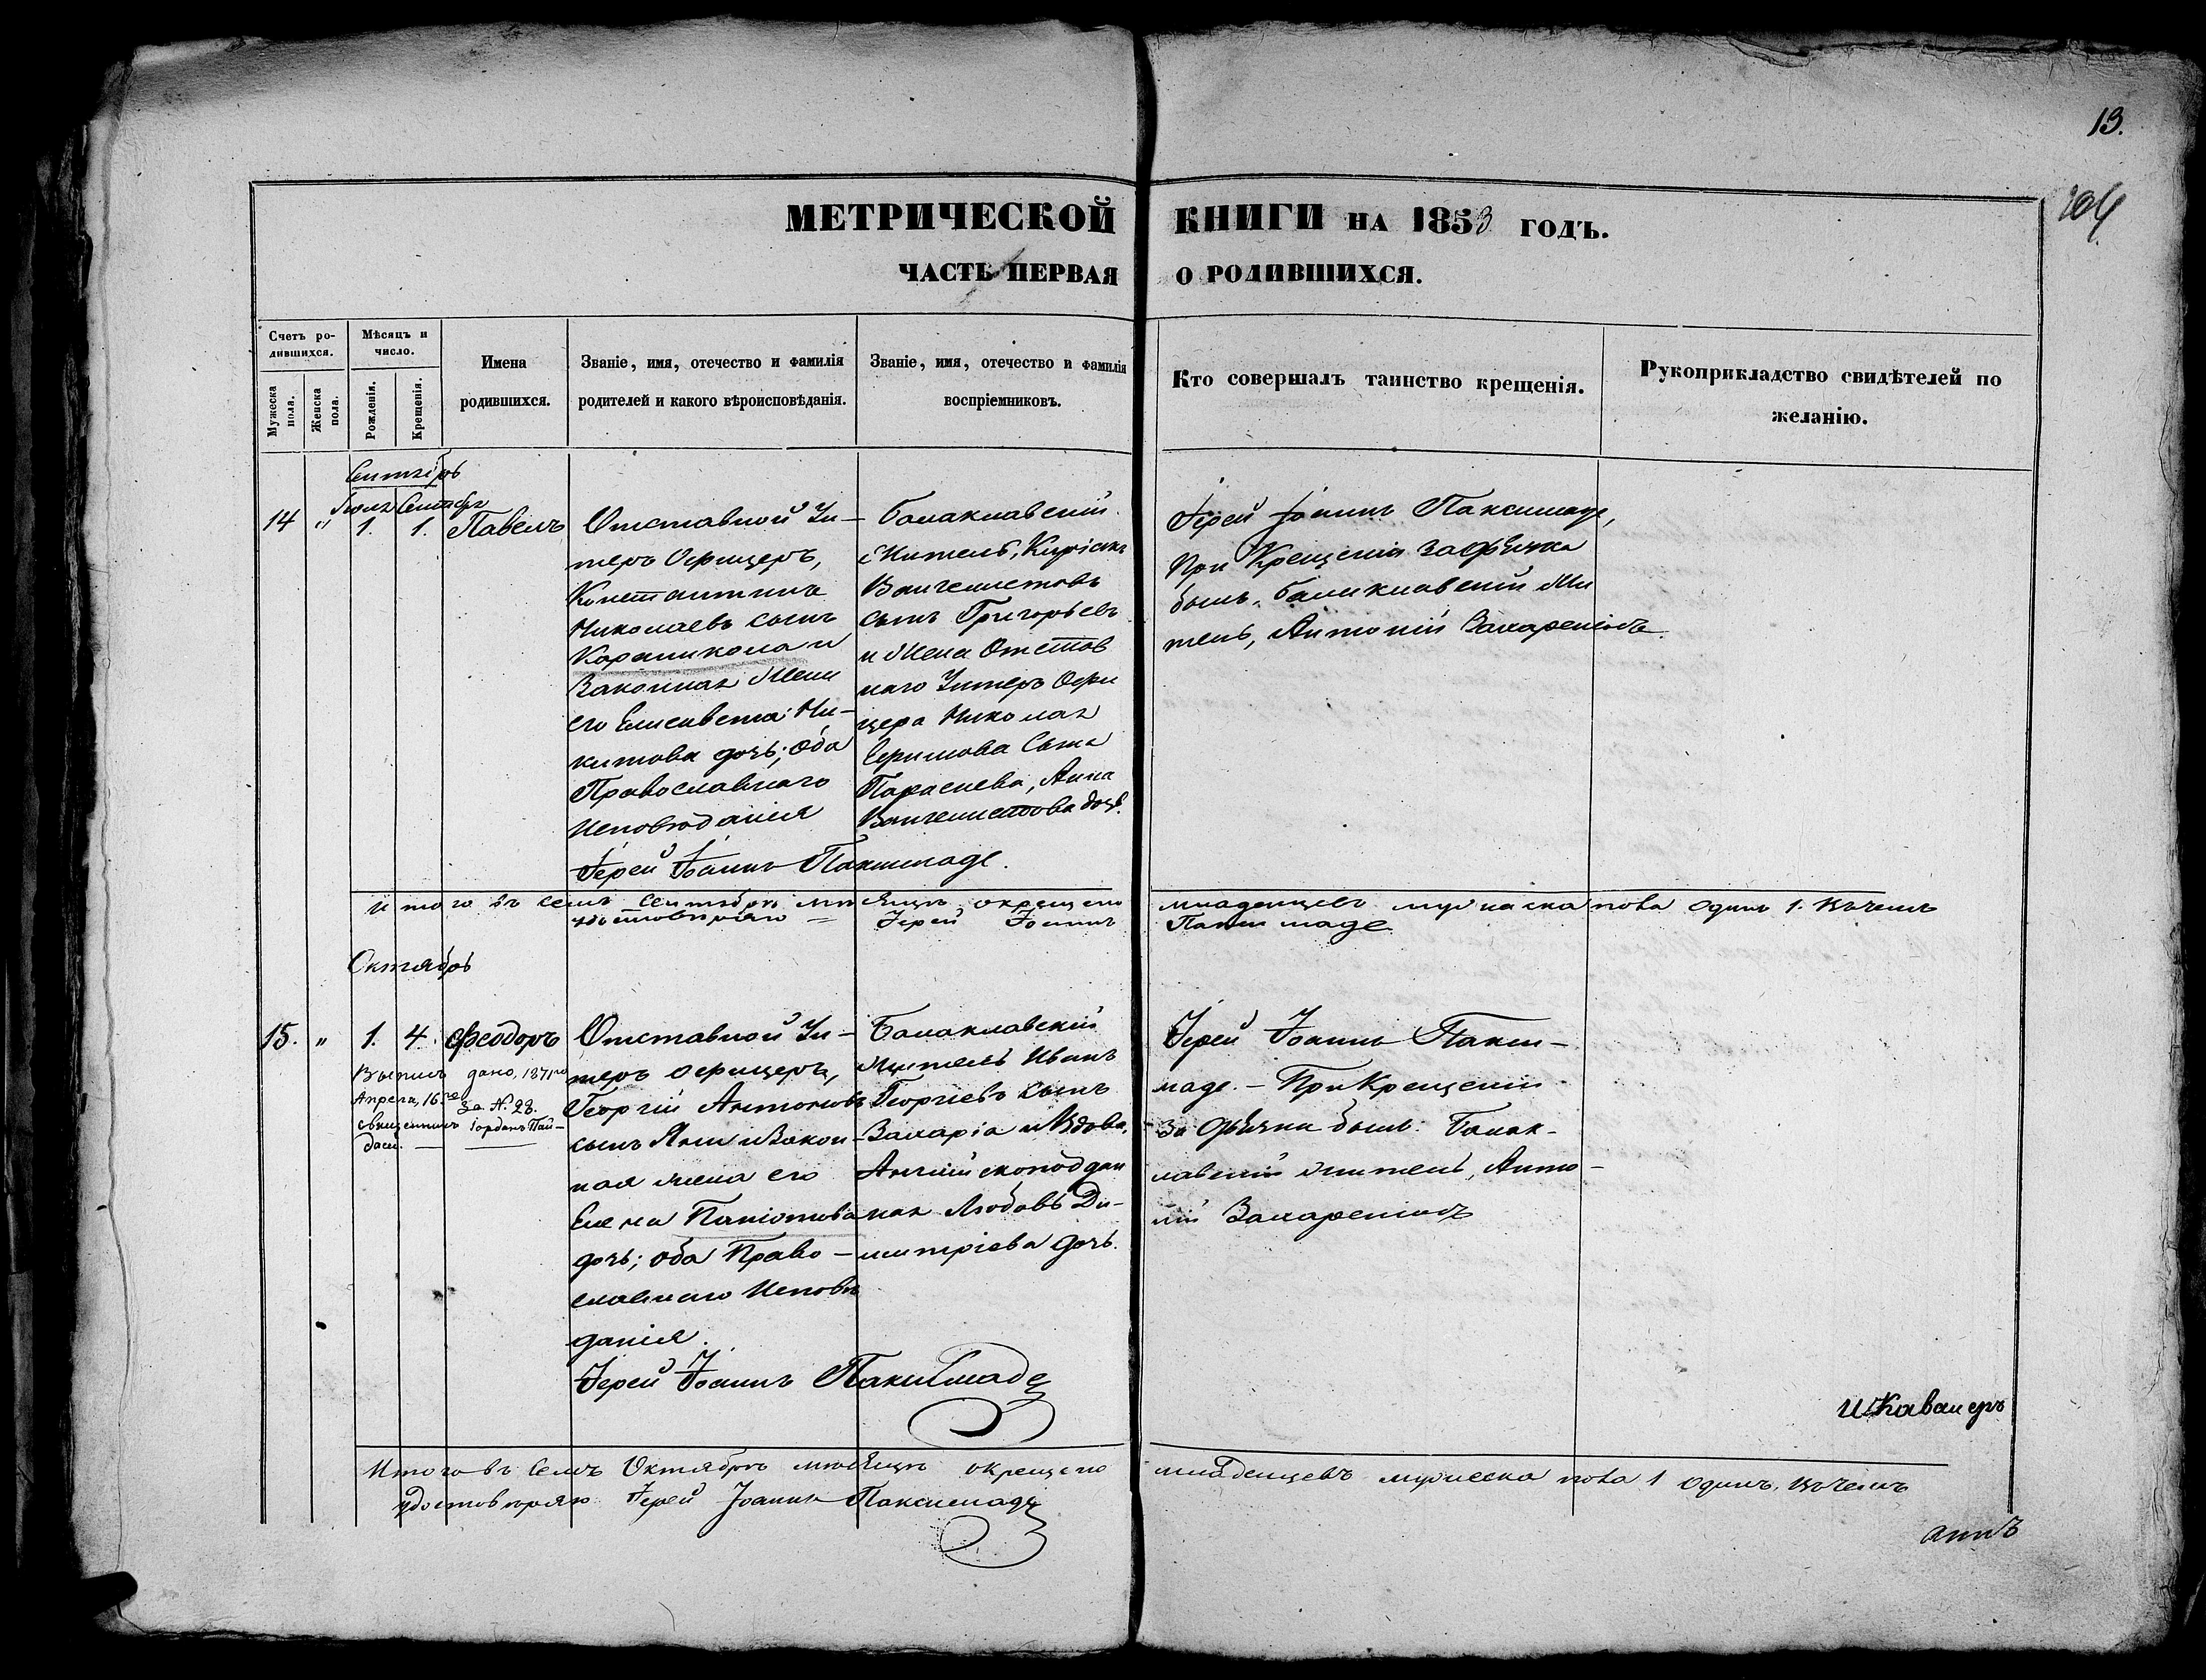 13.
204
МЕТРИЧЕСКОЙ КНИГИ НА 1853 ГОДЪ.
ЧАСТЬ ПЕРВАЯ О РОДИВШИХСЯ.
Счетъ ро-
дившихся.
Мужеска
пола.
Женска
пола.
Мѣсяцъ и
число.
Рожденія.
Крещенія.
Имена
родившихся.
Званіе, имя, отечество и фамилія
родителей и какого вѣроисповѣданія.
Званіе, имя, отечество и фамилія
воспріемниковъ.
Кто совершалъ таинство крещенія.
Рукоприкладство свидѣтелей по
желанію.
Сентябрь
Сентябр
14 " 1. 1. Павелъ
Отставной Ун-
теръ Офицеръ,
Константинъ
Николаевъ сынъ
Карамикола и
Законная Жена
его Елисавета Ни-
китова дочь; Оба
Православнаго
Исповѣданія
Іерей Іоаннъ Паксимаде.
Балаклавскій
Житель, Киріакъ
Вангелистовъ
сынъ Григорьевъ
и Жена Отстав
наго Унтеръ Офи
цера Николая
Сына
Параскева, Анна
Вангелистова дочь.
Іерей Іоаннъ Паксимаде,
При Крещеніи за Дьячка
былъ, балаклавскій Жи
тель, Антоній
Итого въ семъ Сентябрѣ мѣсяцѣ окрещено младенцевъ мужеска пола одинъ 1. Въ чемъ
удостовѣряю = Іерей Іоаннъ Паксимаде
Октябрь
15. " 1. 4. Ѳеодоръ
Выпись дано, 1871го
Апреля, 16го за №. 28.
священникъ Іорданъ Пай-
даси.
Отставной Ун-
теръ офицеръ,
Георгій Антоновъ
сынъ Яни и Закон-
ная жена его
Елена Паніотова
дочь; оба Право-
славнаго Исповѣ
данія.
Іерей Іоаннъ Паксимаде
Балаклавскій
житель Иванъ
Георгіевъ сынъ
Захаріа и Вдова,
Англійскоподдан
ная Любовь Ди-
митріева дочь.
Іерей Іоаннъ Пакси-
маде. - При Крещеніи
за Дьячка былъ: Балак-
лавскій житель, Анто-
ній
и Кавалеръ
Итого въ семъ Октябрѣ мѣсяцѣ окрещено младенцевъ мужеска пола 1 одинъ. Въ чемъ
удостовѣряю Іерей Іоаннъ Паксимаде